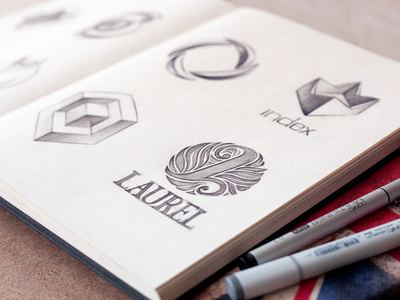 index
LAUREL